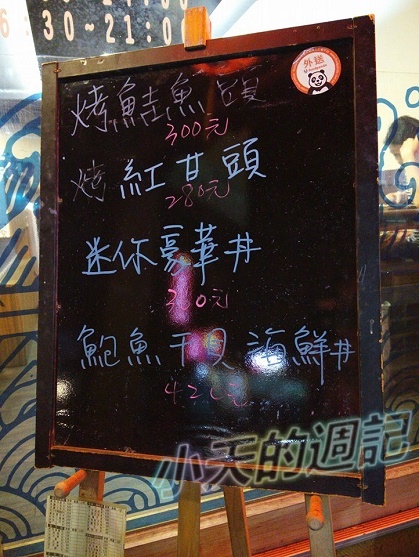 :30~21:00
外送
烤鮭魚頭
300元
烤紅甘頭
280元
迷你豪華丼
元
鮑魚干貝海鮮丼
小天的週記